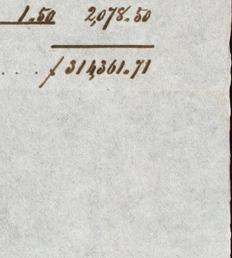 1.50 2,078.50
.... $314,361.71